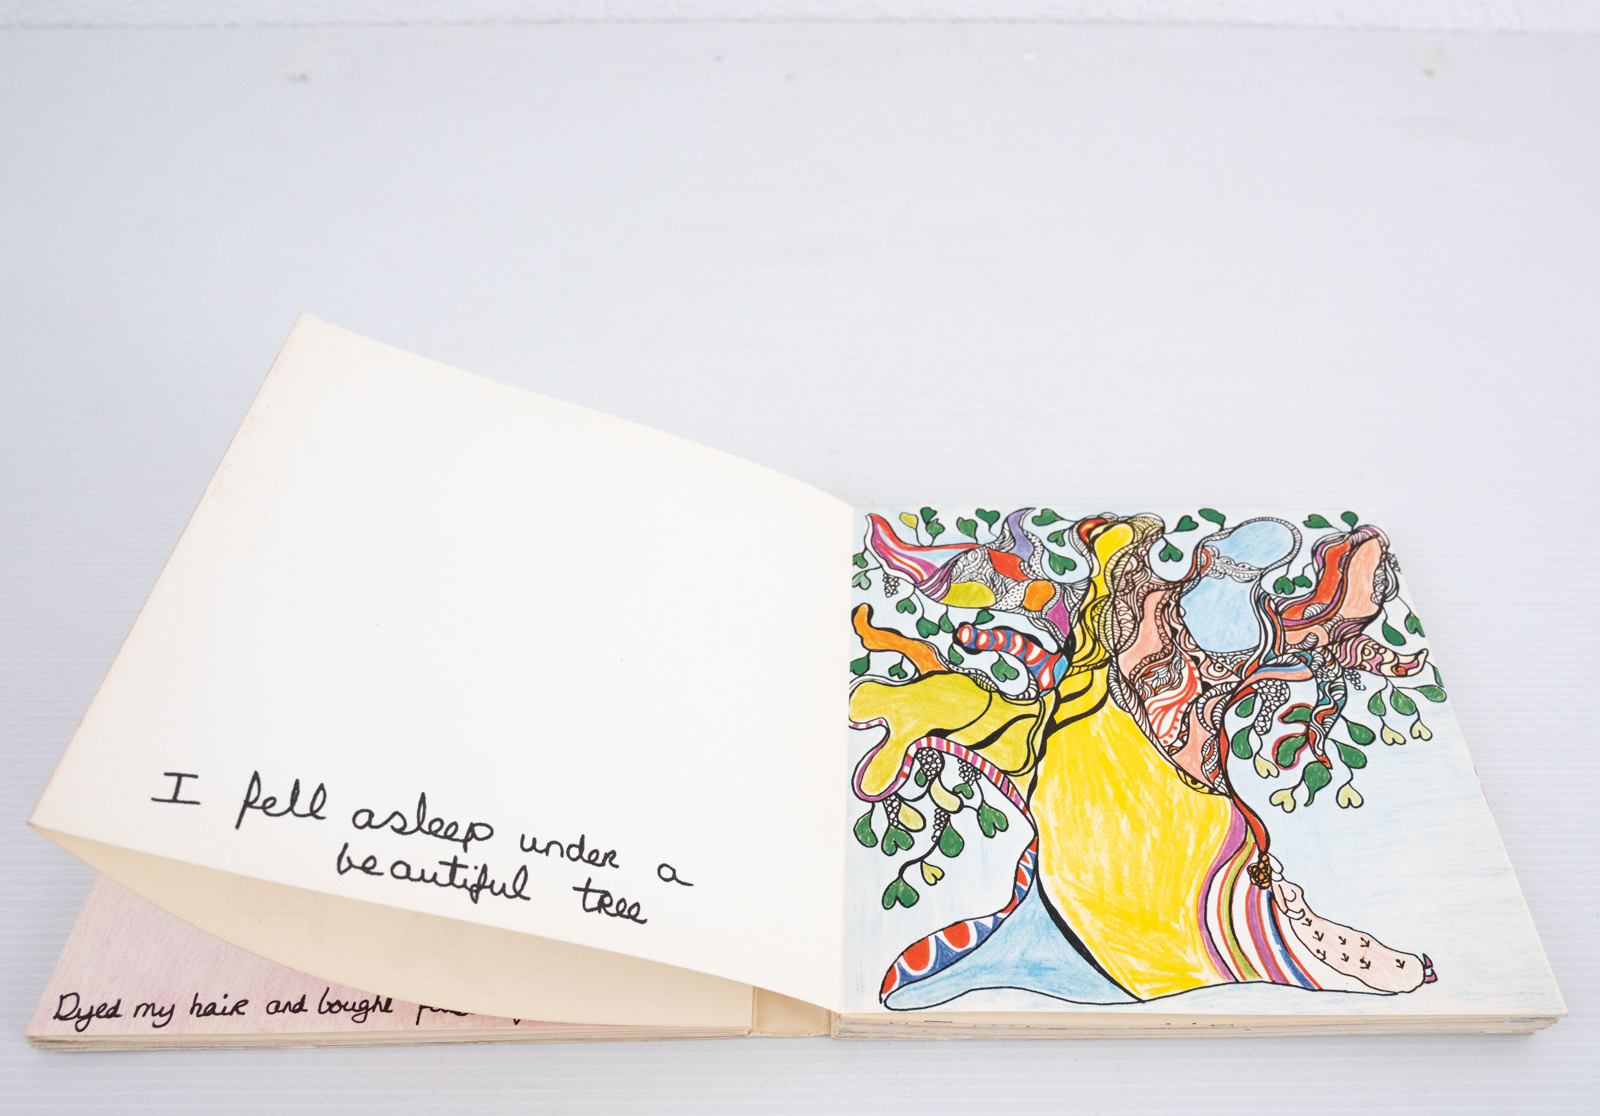 I fell asleep under a
beautiful tree
Dyed my hair and bought